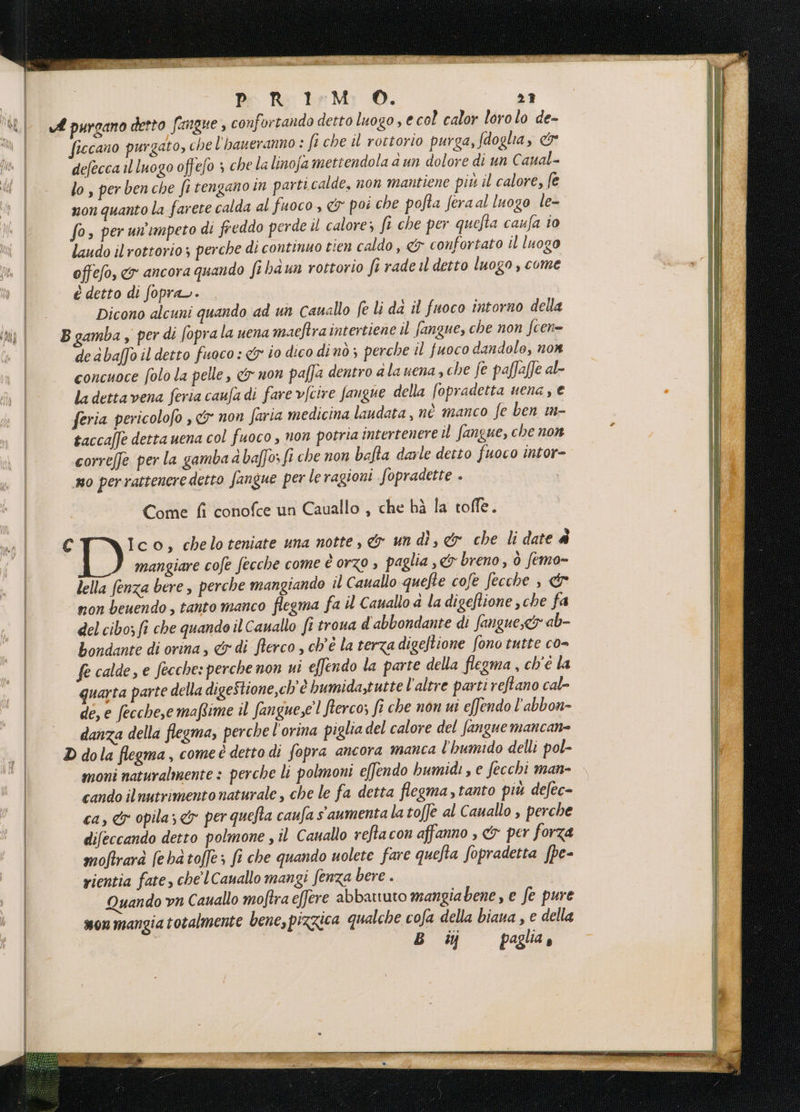 P R I M O. 21
A purgano detto ſangue, confortando detto luogo, e col calor loro lo de-
ſiccano purgato, che l'haueranno: ſi che il rottorio purga, ſdoglia, &
deſecca il luogo offeſo; che la linoſa mettendola à un dolore di un Caual-
lo, per ben che ſi tengano in parti calde, non mantiene più il calore, ſe
non quanto la farete calda al fuoco, & poi che poſta ſera al luogo le-
ſo, per un'impeto di freddo perde il calore; ſi che per queſta cauſa io
laudo il rottorio; perche di continuo tien caldo, & confortato il luogo
offeſo, & ancora quando ſi hà un rottorio ſi rade il detto luogo, come
è detto di ſopra.
Dicono alcuni quando ad un Cauallo ſe li dà il fuoco intorno della
B gamba, per di ſopra la uena maeſtra intertiene il ſangue, che non ſcen-
de à baſſo il detto fuoco: & io dico di nò; perche il fuoco dandolo, non
concuoce ſolo la pelle, & non paſſa dentro à la uena, che ſe paſſaſſe al-
la detta vena ſeria cauſa di fare vſcire ſangue della ſopradetta uena, e
ſeria pericoloſo, & non ſaria medicina laudata, nè manco ſe ben in-
taccaſſe detta uena col fuoco, non potria intertenere il ſangue, che non
correſſe per la gamba à baſſo; ſi che non baſta darle detto fuoco intor-
no per rattenere detto ſangue per le ragioni ſopradette.
Come ſi conoſce un Cauallo, che hà la toſſe.
C DIco, che lo teniate una notte, & un dì, & che li date à
mangiare coſe ſecche come è orzo, paglia, & breno, ò ſemo-
lella ſenza bere, perche mangiando il Cauallo queſte coſe ſecche, &
non beuendo, tanto manco flegma fa il Cauallo à la digeſtione, che fa
del cibo; ſi che quando il Cauallo ſi troua d'abbondante di ſangue, & ab-
bondante di orina, & di ſterco, ch'è la terza digeſtione ſono tutte co-
ſe calde, e ſecche: perche non ui eſſendo la parte della flegma, ch'è la
quarta parte della digeſtione, ch'è humida, tutte l'altre parti reſtano cal-
de, e ſecche, e maſſime il ſangue, e'l ſterco; ſi che non ui eſſendo l'abbon-
danza della flegma, perche l'orina piglia del calore del ſangue mancan-
D do la flegma, come è detto di ſopra ancora manca l'humido delli pol-
moni naturalmente: perche li polmoni eſſendo humidi, e ſecchi man-
cando il nutrimento naturale, che le fa detta flegma, tanto più deſec-
ca, & opila; & per queſta cauſa s'aumenta la toſſe al Cauallo, perche
diſeccando detto polmone, il Cauallo reſta con affanno, & per forza
moſtrarà ſe hà toſſe; ſi che quando uolete fare queſta ſopradetta ſpe-
rientia fate, che'l Cauallo mangi ſenza bere.
Quando vn Cauallo moſtra eſſere abbattuto mangia bene, e ſe pure
non mangia totalmente bene, pizzica qualche coſa della biaua, e della
B iij paglia,